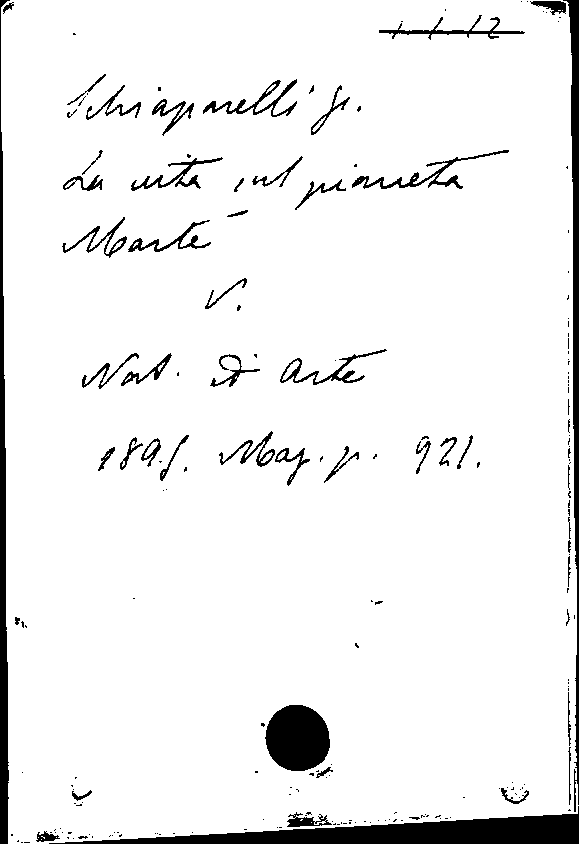 1-1-12
Schiaparelli G.
La vita sul pianeta
Marte
V.
Nat. ed Arte
1895. Mag. p. 921.